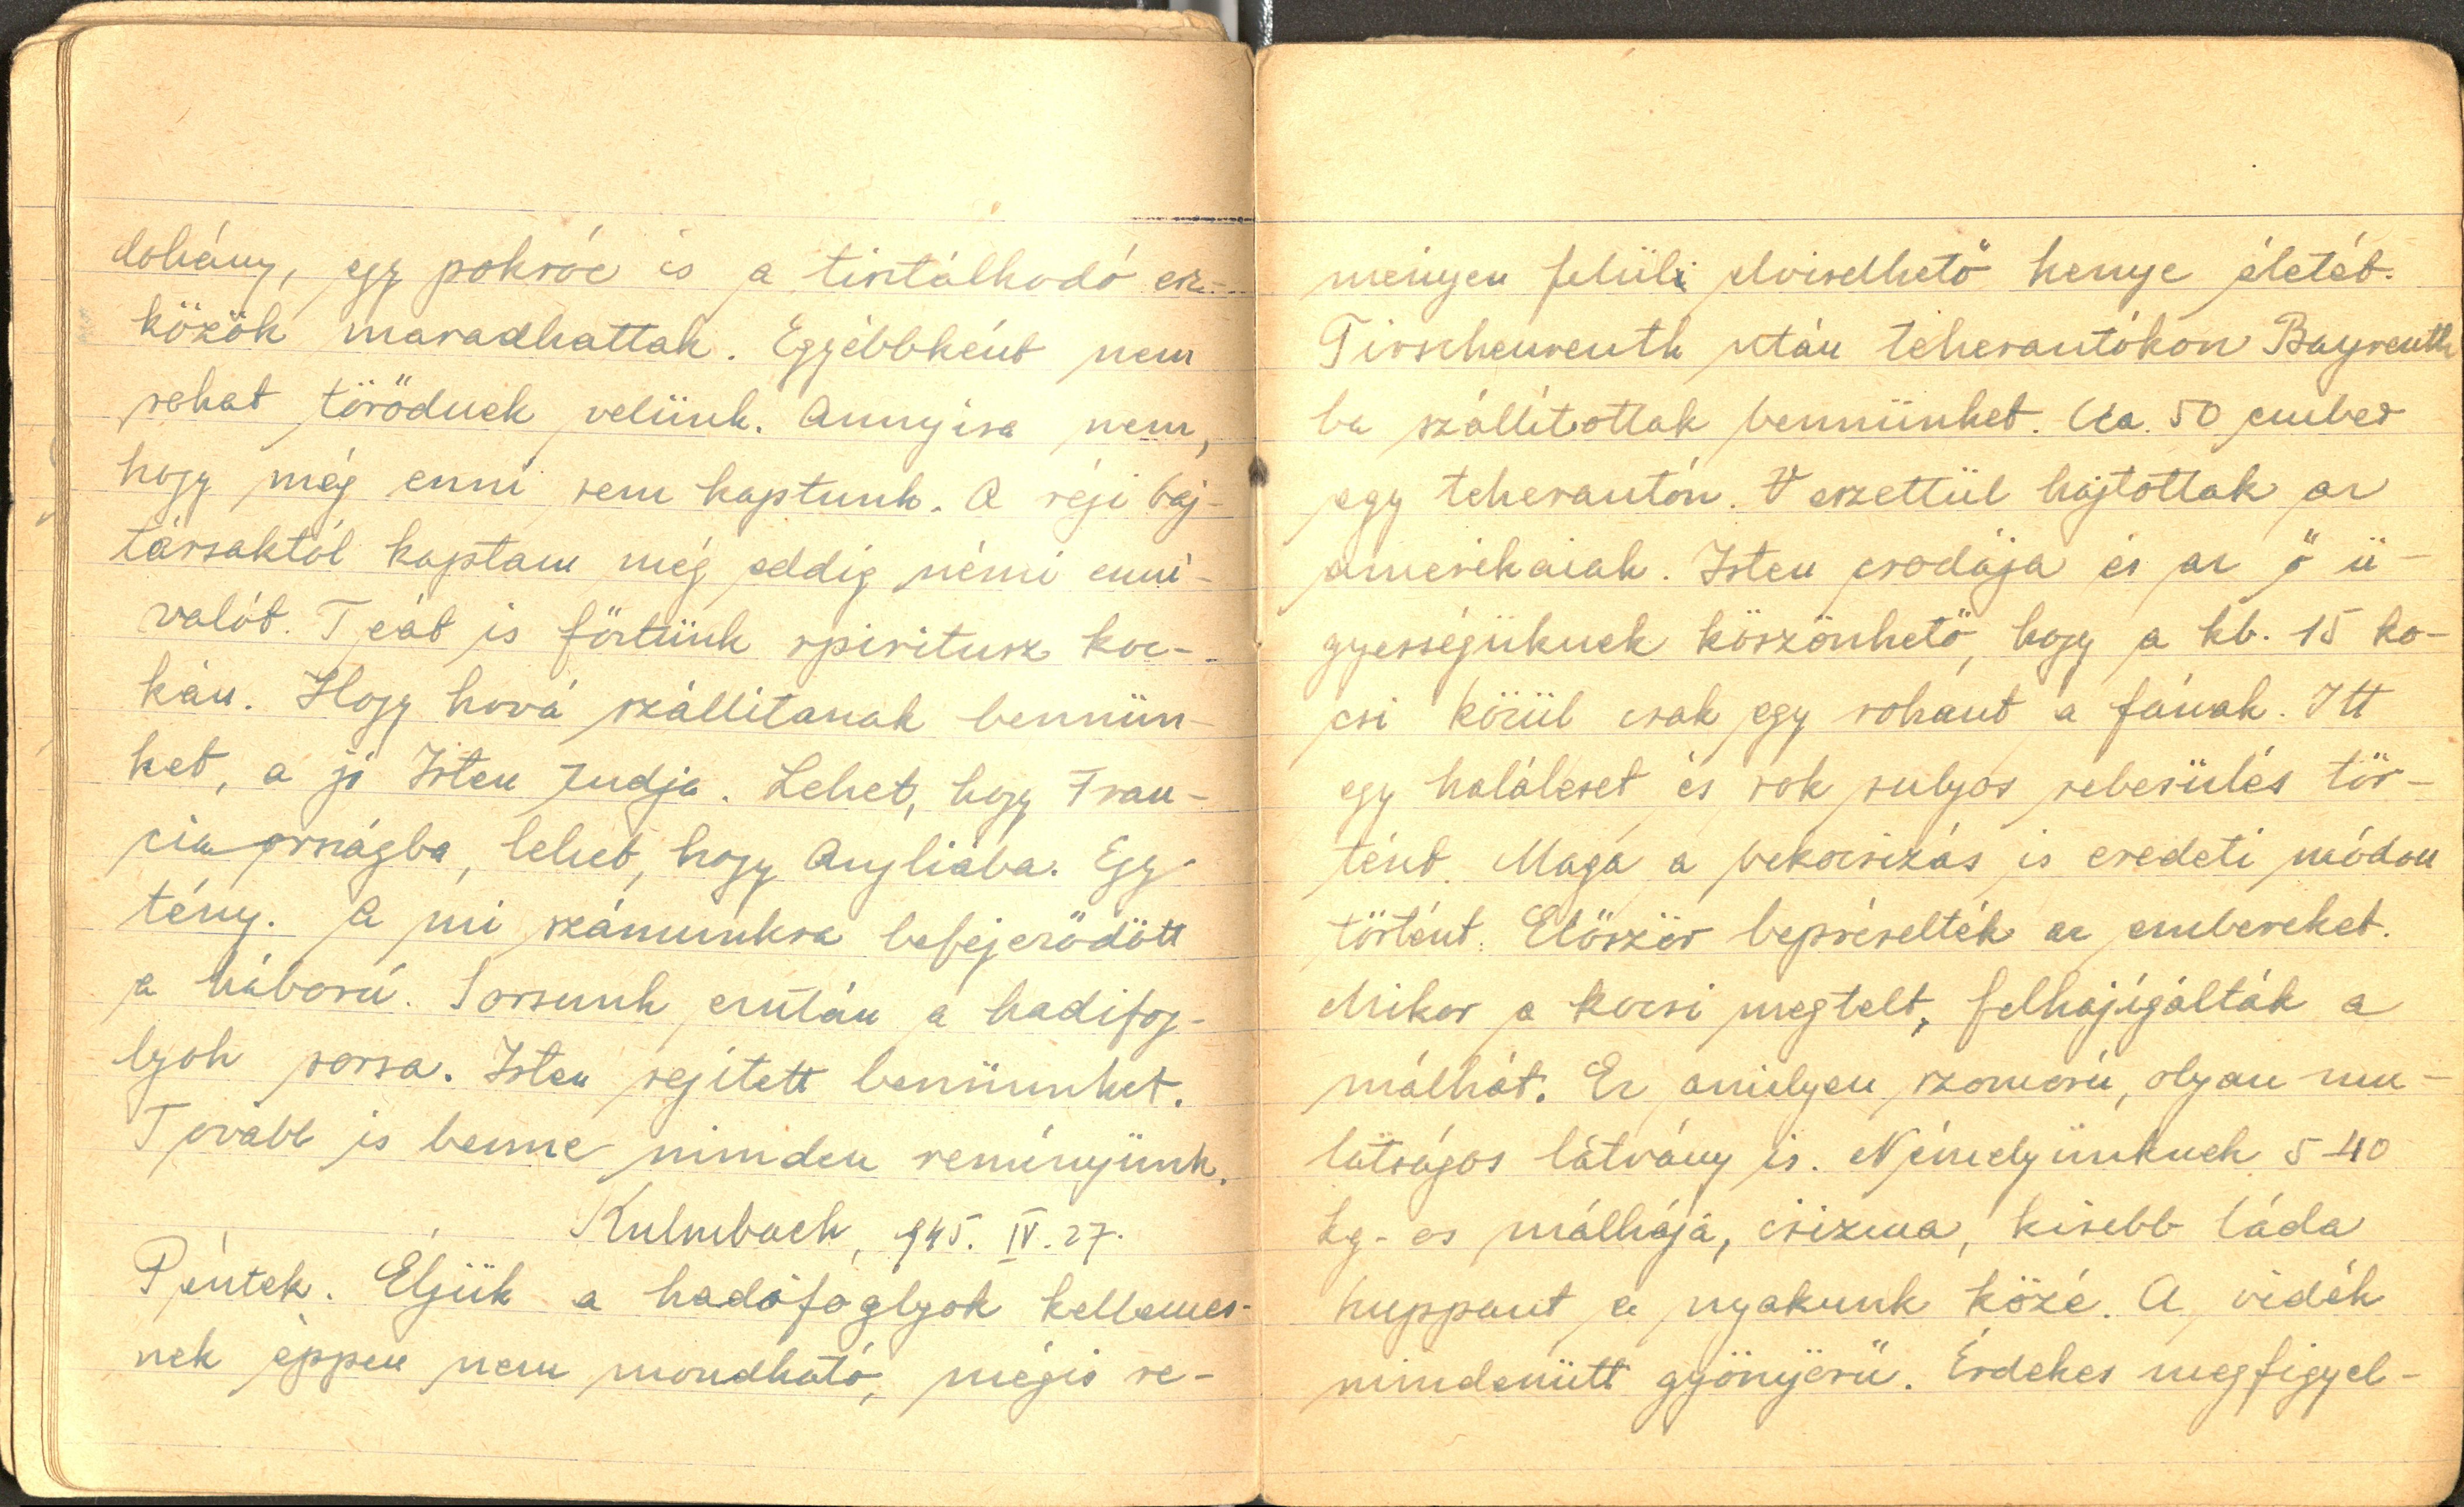 dohány, egy pokróc is a tisztálkodó esz-
közök maradhattak. Egyébbként nem
sokat törődnek velünk. Annyira nem,
hogy még enni sem kaptunk. A régi baj-
társaktól kaptam még eddig némi enni-
valót. Teát is főztünk spiritusz koc-
kán. Hogy hová szállítanak bennün-
ket, a jó Isten tudja. Lehet, hogy Fran-
ciaországba, lehet, hogy Angliába. Egy
tény. A mi számunkra befejeződött
a háború. Sorsunk ezután a hadifog-
lyok sorsa. Isten segített bennünket.
Tovább is benne minden reményünk.
Kulmbach, 945. IV. 27.
Péntek. Éljük a hadifoglyok kellemes-
nek éppen nem mondható, mégis re-
ményen felüli elviselhető henye életét.
Tirschenreuth után teherautókon Bayreuth
ba szállítottak bennünket. Ca. 50 ember
egy teherautón. Veszettül hajtottak az
amerikaiak. Isten csodája és az ő ü-
gyességüknek köszönhető, hogy a kb. 15 ko-
csi közül csak egy rohant a fának. Itt
egy haláleset és sok sulyos sebesülés tör-
tént. Maga a bekocsizás is eredeti módon
történt. Először bepréselték az embereket.
Mikor a kocsi megtelt, felhajigálták a
málhát. Ez amilyen szomorú, olyan mu-
latságos látvány is. Némelyünknek 5-40
kg-os málhája, csizma, kisebb láda
huppant a nyakunk közé. A vidék
mindenütt gyönyörű. Érdekes megfigyel-